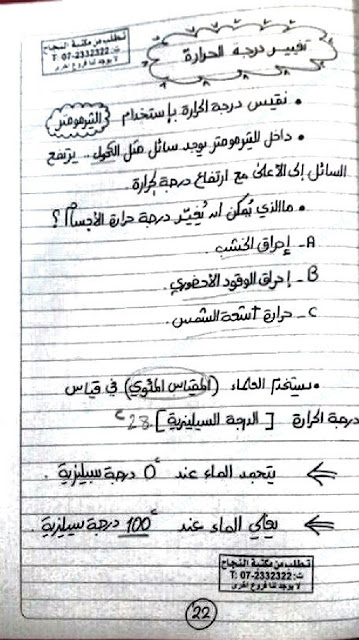 تطلب من مكتبة النجاح
ت: 07-2332322 :T
لا يوجد لنا فروع اخرى
تغيير درجة الحرارة
• نقيس درجة الحرارة بإستخدام الثرمومتر
• داخل الثرمومتر يوجد سائل مثل الكحول .. يرتفع
السائل إلى الأعلى مع ارتفاع درجة الحرارة.
• ما الذي يمكن أن يُغيّر درجة حرارة الأجسام؟
A- إحراق الخشب.
B- إحراق الوقود الأحفوري.
C- حرارة أشعة الشمس.
• يستخدم العلماء (المقياس المئوي) في قياس
درجة الحرارة [الدرجة السيليزية] 28 c
← يتجمد الماء عند 0 c درجة سيليزية.
← يغلي الماء عند 100 c درجة سيليزية.
تطلب من مكتبة النجاح
ت: 07-2332322 :T
لا يوجد لنا فروع اخرى
22